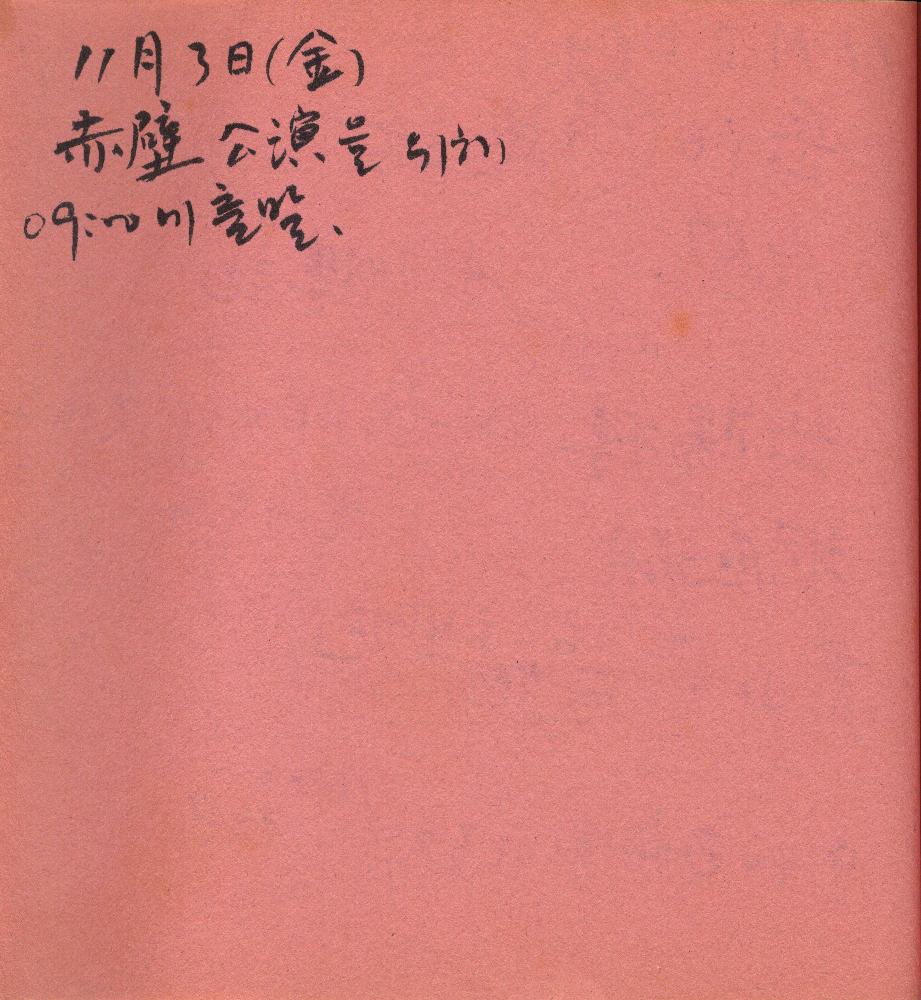 11月 3日(金)
赤壁 公演을 위해
09:00에 출발.